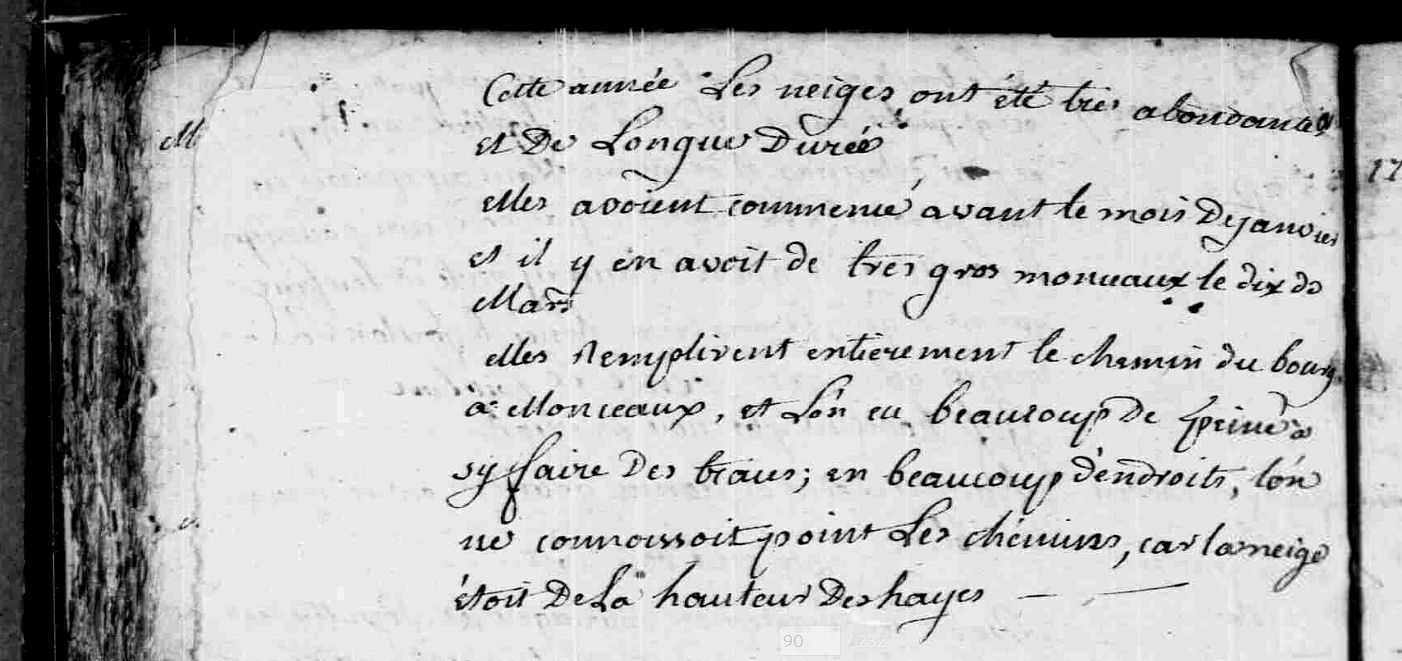 Cette année Les neiges ont été tres abondantes
et De Longue Durée
elles avoient commencé avant le mois De janvier
et il y en avoit de tres gros monceaux le dix de
Mars
elles Remplirent entierement le chemin du bourg
a Monceaux, et L'on eu beaucoup De peine a
sy faire Des traces; en beaucoup d'endroits, l'on
ne connoissoit point Les chemins, car la neige
étoit De La hauteur Des hayes
M
17
90 /232